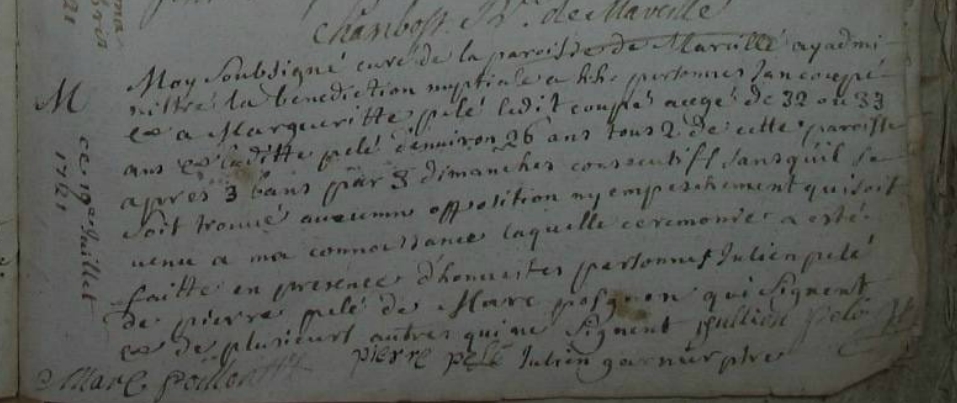 Chambost P.r de Marcillé
M
ce 1er juillet
1721
Moy soubsigné curé de la paroisse de Marcillé ay admi
nistré la benediction nuptiale a hhe personnes Jan coupé
& a Margueritte pelé ledit coupé aagé de 32 ou 33
ans & laditte pelé denuiron 26 ans tous 2 de cette paroisse
apres 3 bans par 3 dimanches consecutifs sans quil se
soit trouué aucunne opposition ny empeschement qui soit
uenu a ma connoissance laquelle ceremonie a esté
faitte en presence d'honnestes personnes Julien pelé
de pierre pelé de Marc qui signent
& de plusieurs autres qui ne signent Jullien pelé
Marc pierre pelé Julien ptre